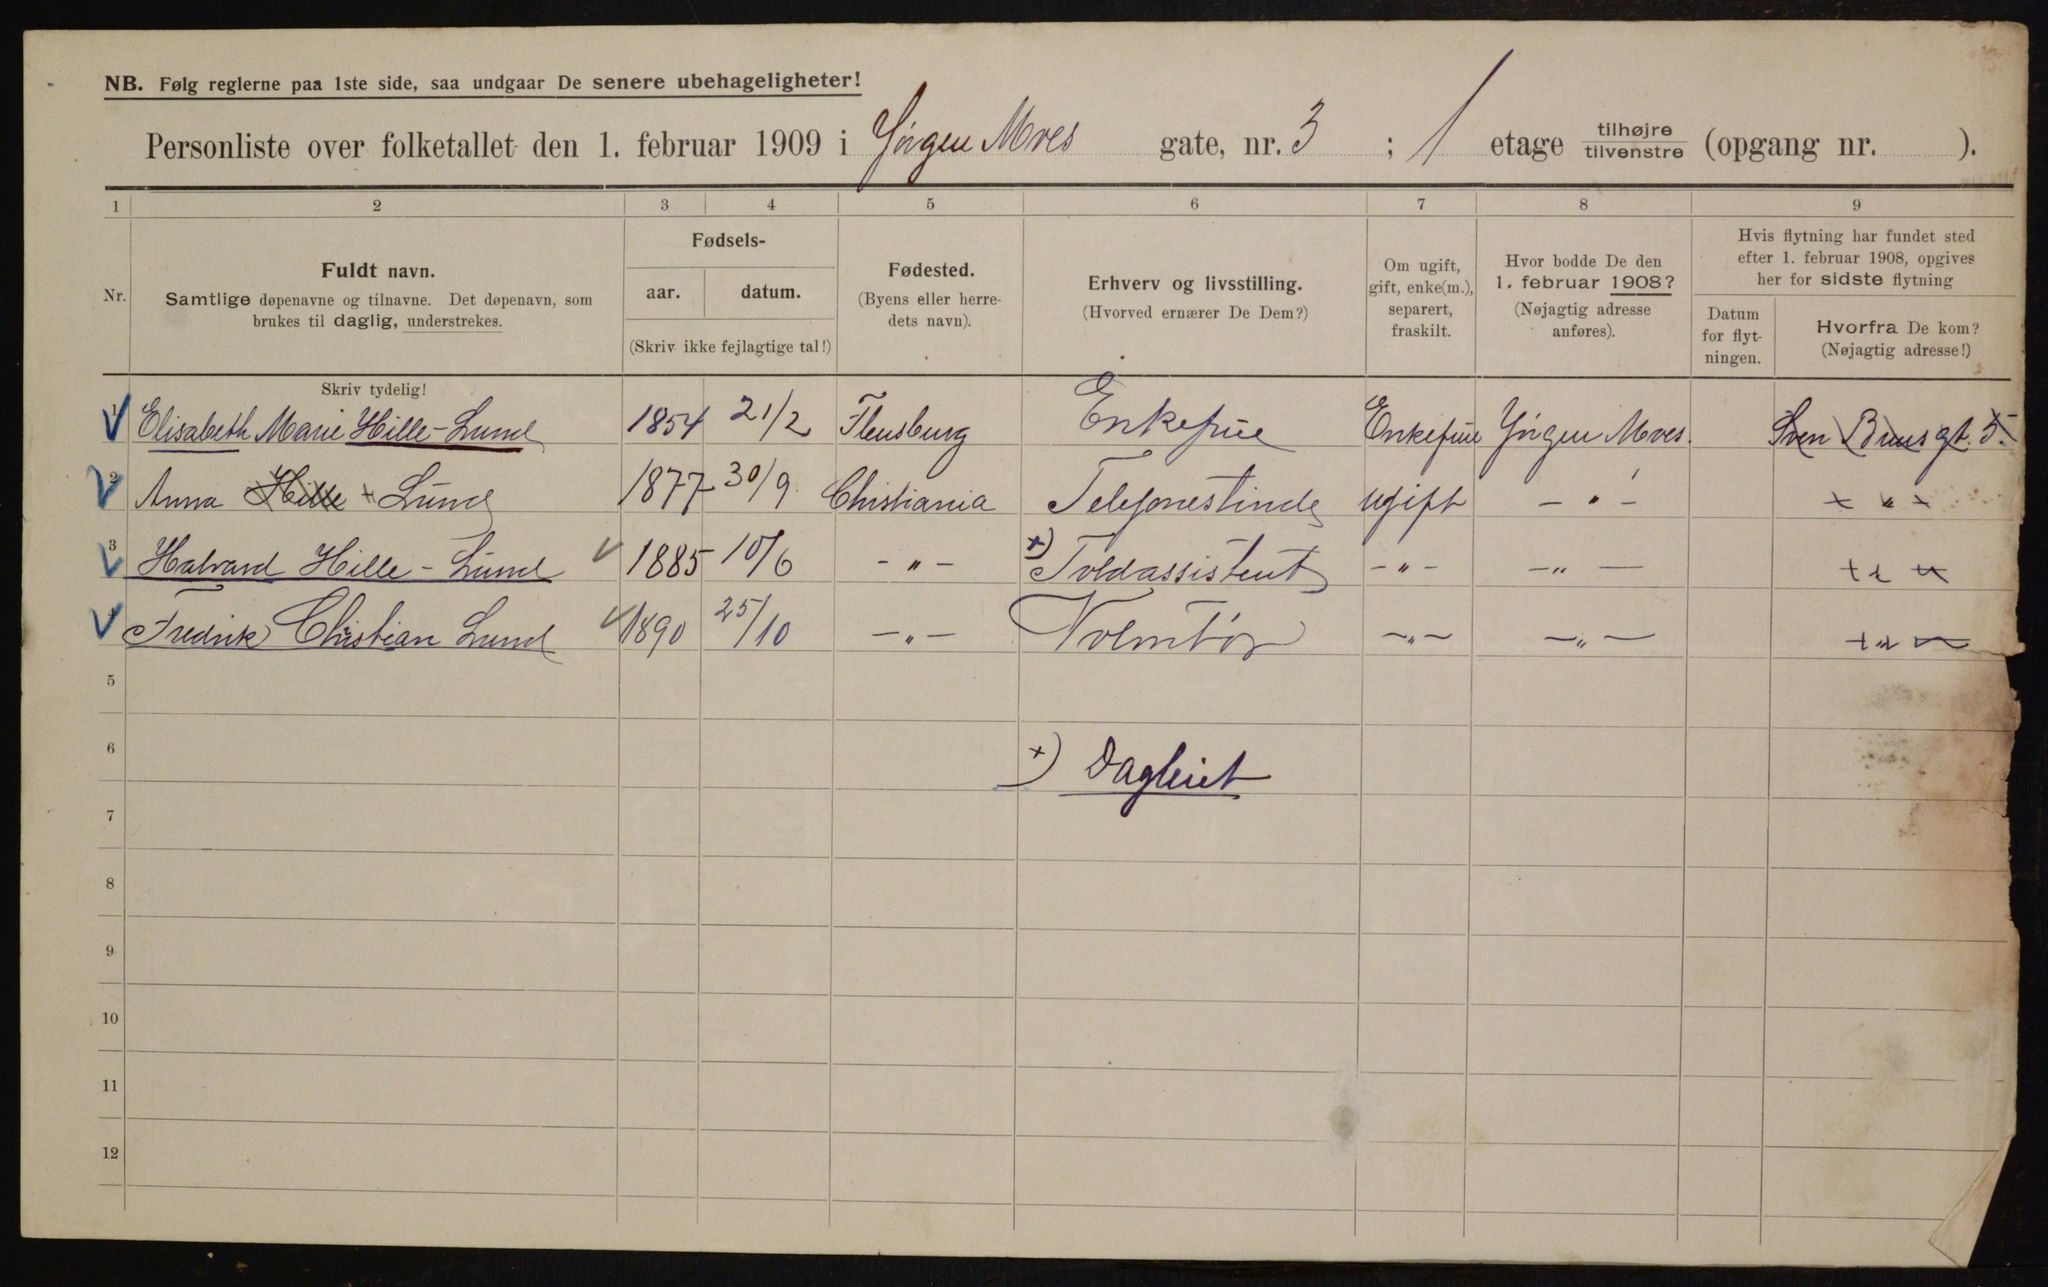 NB. Følg reglerne paa 1ste side, saa undgaar De senere ubehageligheter!
Personliste over folketallet den 1. februar 1909 i Jørgen Moes gate, nr. 3 ; 1 etage tilhøjre tilvenstre (opgang nr. ).
1 2 3 4 5 6 7 8 9
Nr.
Fuldt navn.
Samtlige døpenavne og tilnavne. Det døpenavn, som
brukes til daglig, understrekes.
Skriv tydelig!
Fødsels-
aar. datum.
(Skriv ikke fejlagtige tal!)
Fødested.
(Byens eller herre-
dets navn).
Erhverv og livsstilling.
(Hvorved ernærer De Dem?)
Om ugift,
gift, enke(m.),
separert,
fraskilt.
Hvor bodde De den
1. februar 1908?
(Nøjagtig adresse
anføres).
Hvis flytning har fundet sted
efter 1. februar 1908, opgives
her for sidste flytning
Datum
for flyt-
ningen.
Hvorfra De kom?
(Nøjagtig adresse!)
1 Elisabeth Marie Hille-Lund 1854 21/2 Flensburg Enkefrue Enkefrue Jørgen Moes. Sven Bruns gt. 5.
2 Anna Hille - Lund 1877 30/9 Christiania Telefonestinde ugift - " - - " -
3 Halvard Hille - Lund 1885 10/6 - " - x) Toldassistent - " - - " - - " -
Fredrik Christian Lund 1890 25/10 - " - Volontør - " - - " - - " -
5
6 x) Dagleiet
7
8
9
10
11
12